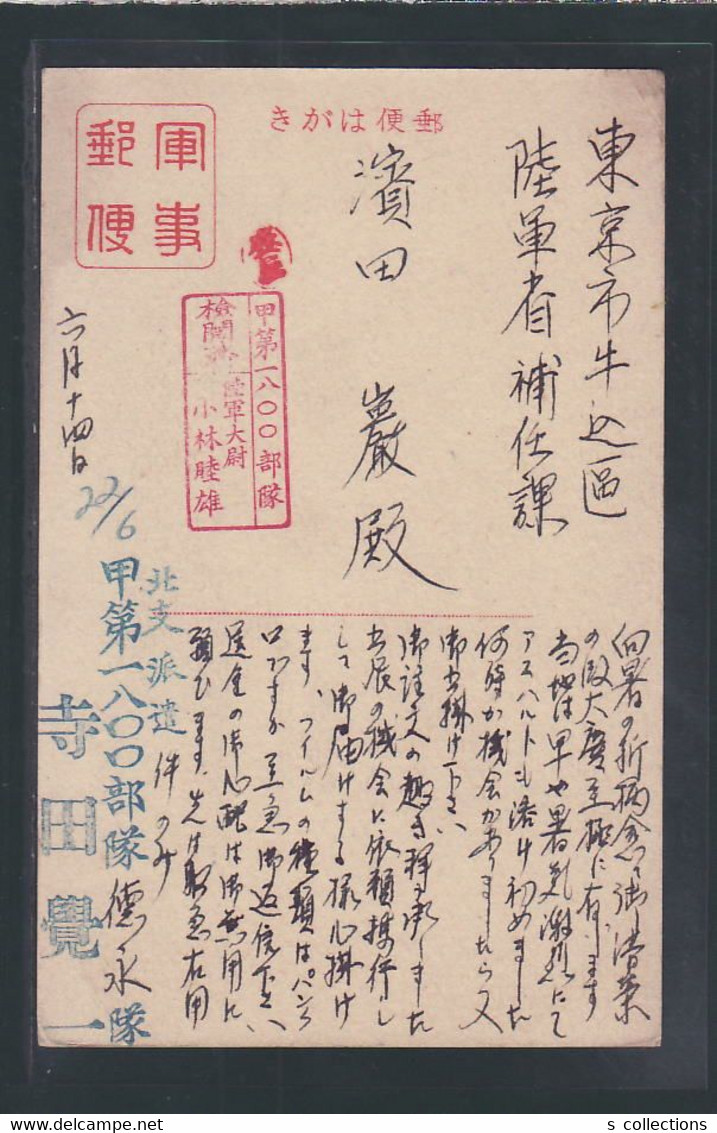 郵便はがき
軍事
郵便
東京市牛込區
陸軍省補任課
濱田 巖殿
甲第一八〇〇部隊
陸軍大尉
小林睦雄
向暑の折柄愈々御清榮
の段大慶至極に存じます
当地は早や暑気激烈にて
アスハルトも溶け初めました
何時か機会がありましたら又
御出掛け下さい
御注文の趣き拝承しました
出展の機会に依頼携行し
して御届けする様心掛け
ます、フイルムの種類はパンクロ
ロですか 至急御返信下さい
送金の御心配は御無用に
願ひます 先は取急右用
件のみ
六月十四日
22/6
北支派遣
甲第一八〇〇部隊德永隊
寺田覺一
s collections